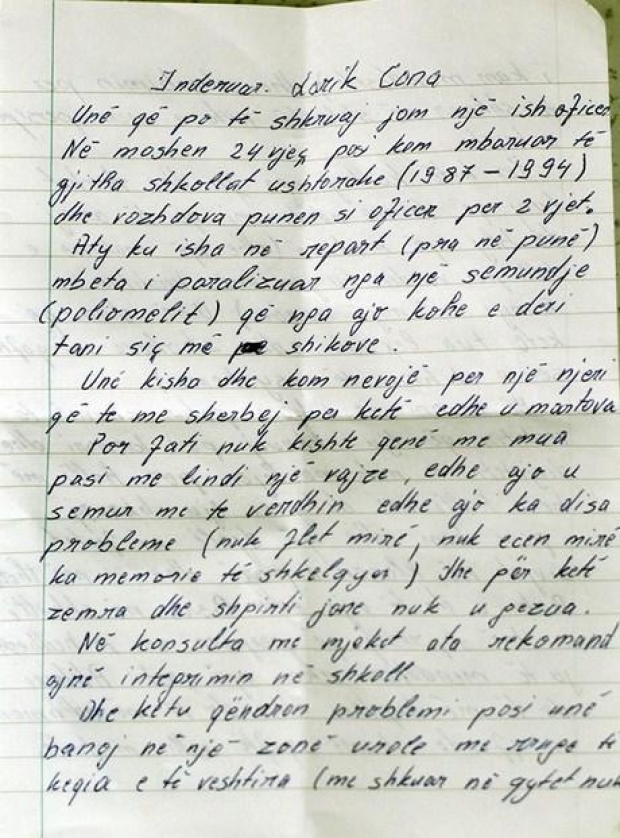 Inderuar. Lorik Cana
Unë që po të shkruaj jam një ish oficer
Në moshen 24 vjeç pasi kam mbaruar të
gjitha shkollat ushtarake (1987 – 1994)
dhe vazhdova punen si oficer per 2 vjet.
Aty ku isha në repart (pra në punë)
mbeta i paralizuar nga një semundje
(poliomelit) që nga ajo kohe e deri
tani siç më shikove.
Unë kisha dhe kam nevojë per një njeri
që te me sherbej per ketë edhe u martova
Por fati nuk kishte qenë me mua
pasi me lindi një vajze, edhe ajo u
semur me te verdhin edhe ajo ka disa
probleme (nuk flet mirë, nuk ecen mirë
ka memorie të shkelqyer) dhe për ketë
zemra dhe shpirti jone nuk u gezua.
Në konsulta me mjeket ata rekomand
ojnë integrimin në shkoll.
Dhe ketu qëndron problemi pasi unë
banoj në një zonë urale me rruge të
keqia e të veshtira (me shkuar në qytet nuk